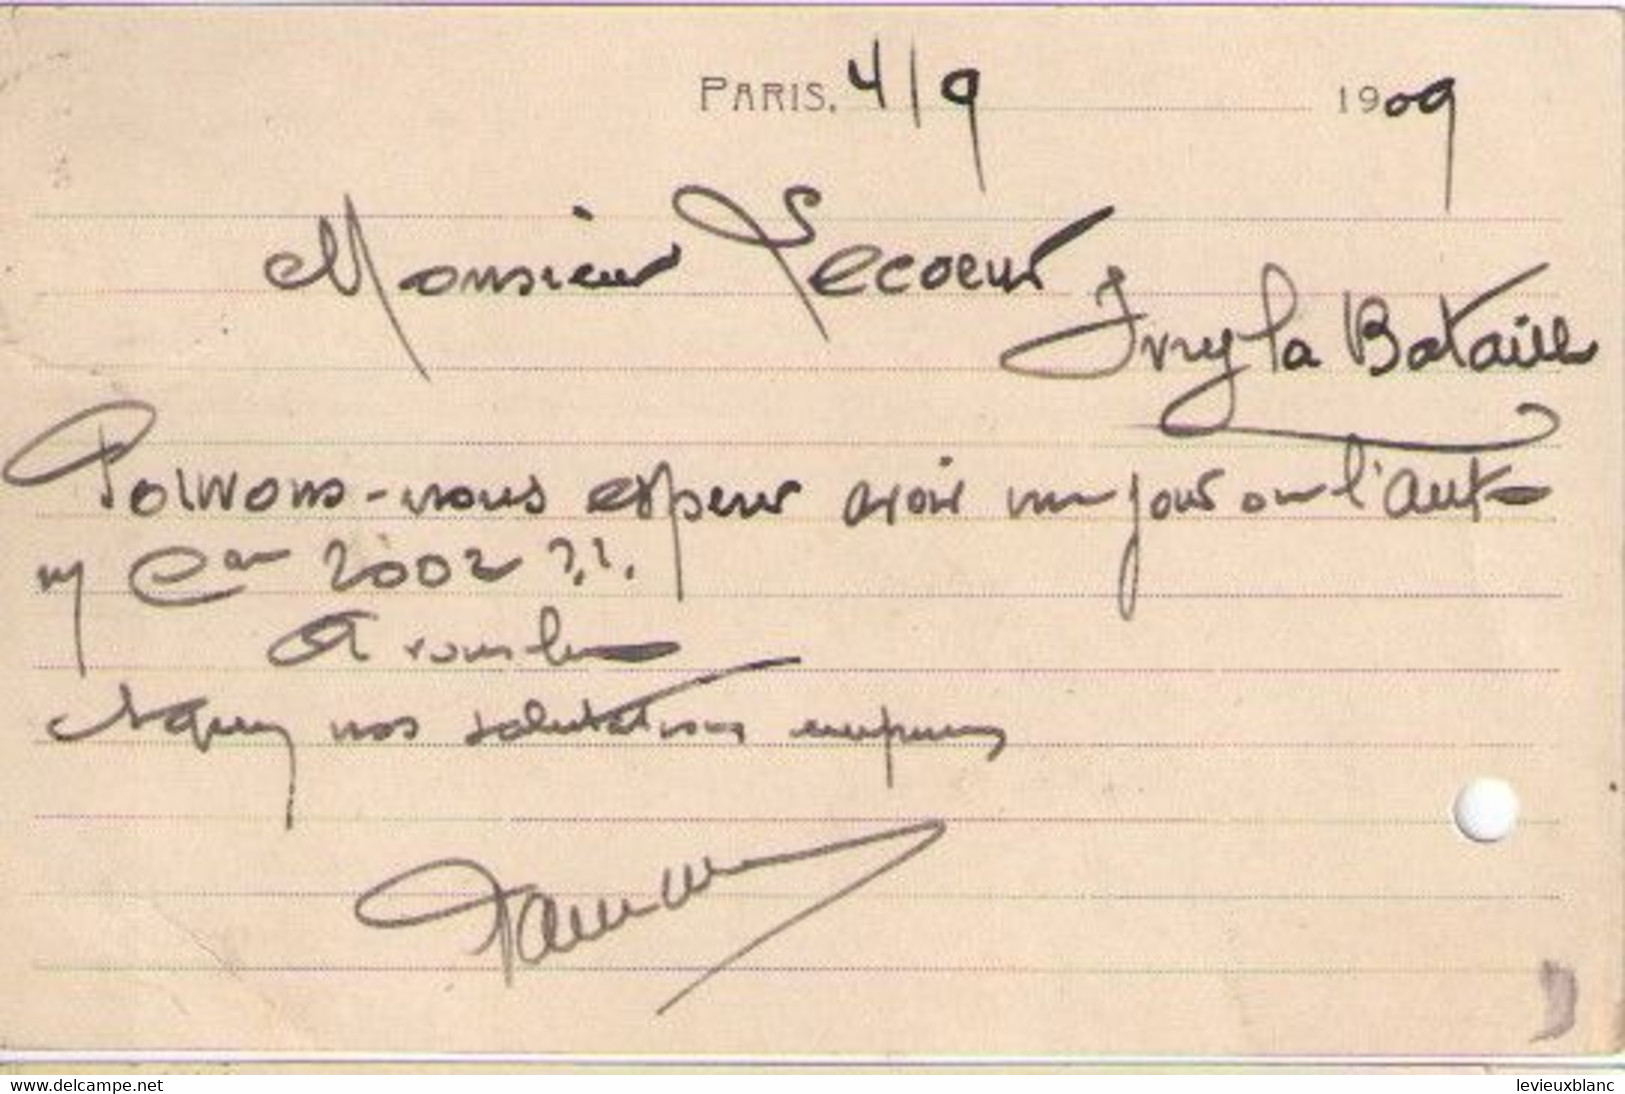 PARIS. 4/9 1909
Monsieur Lecoeur
Ivry la Bataille
Pouvons-nous espérer avoir un jour ou l'autre
n/ Com 2002 ??.
A vous lire
nos salutations empressées
www.delcampe.net
levieuxblanc